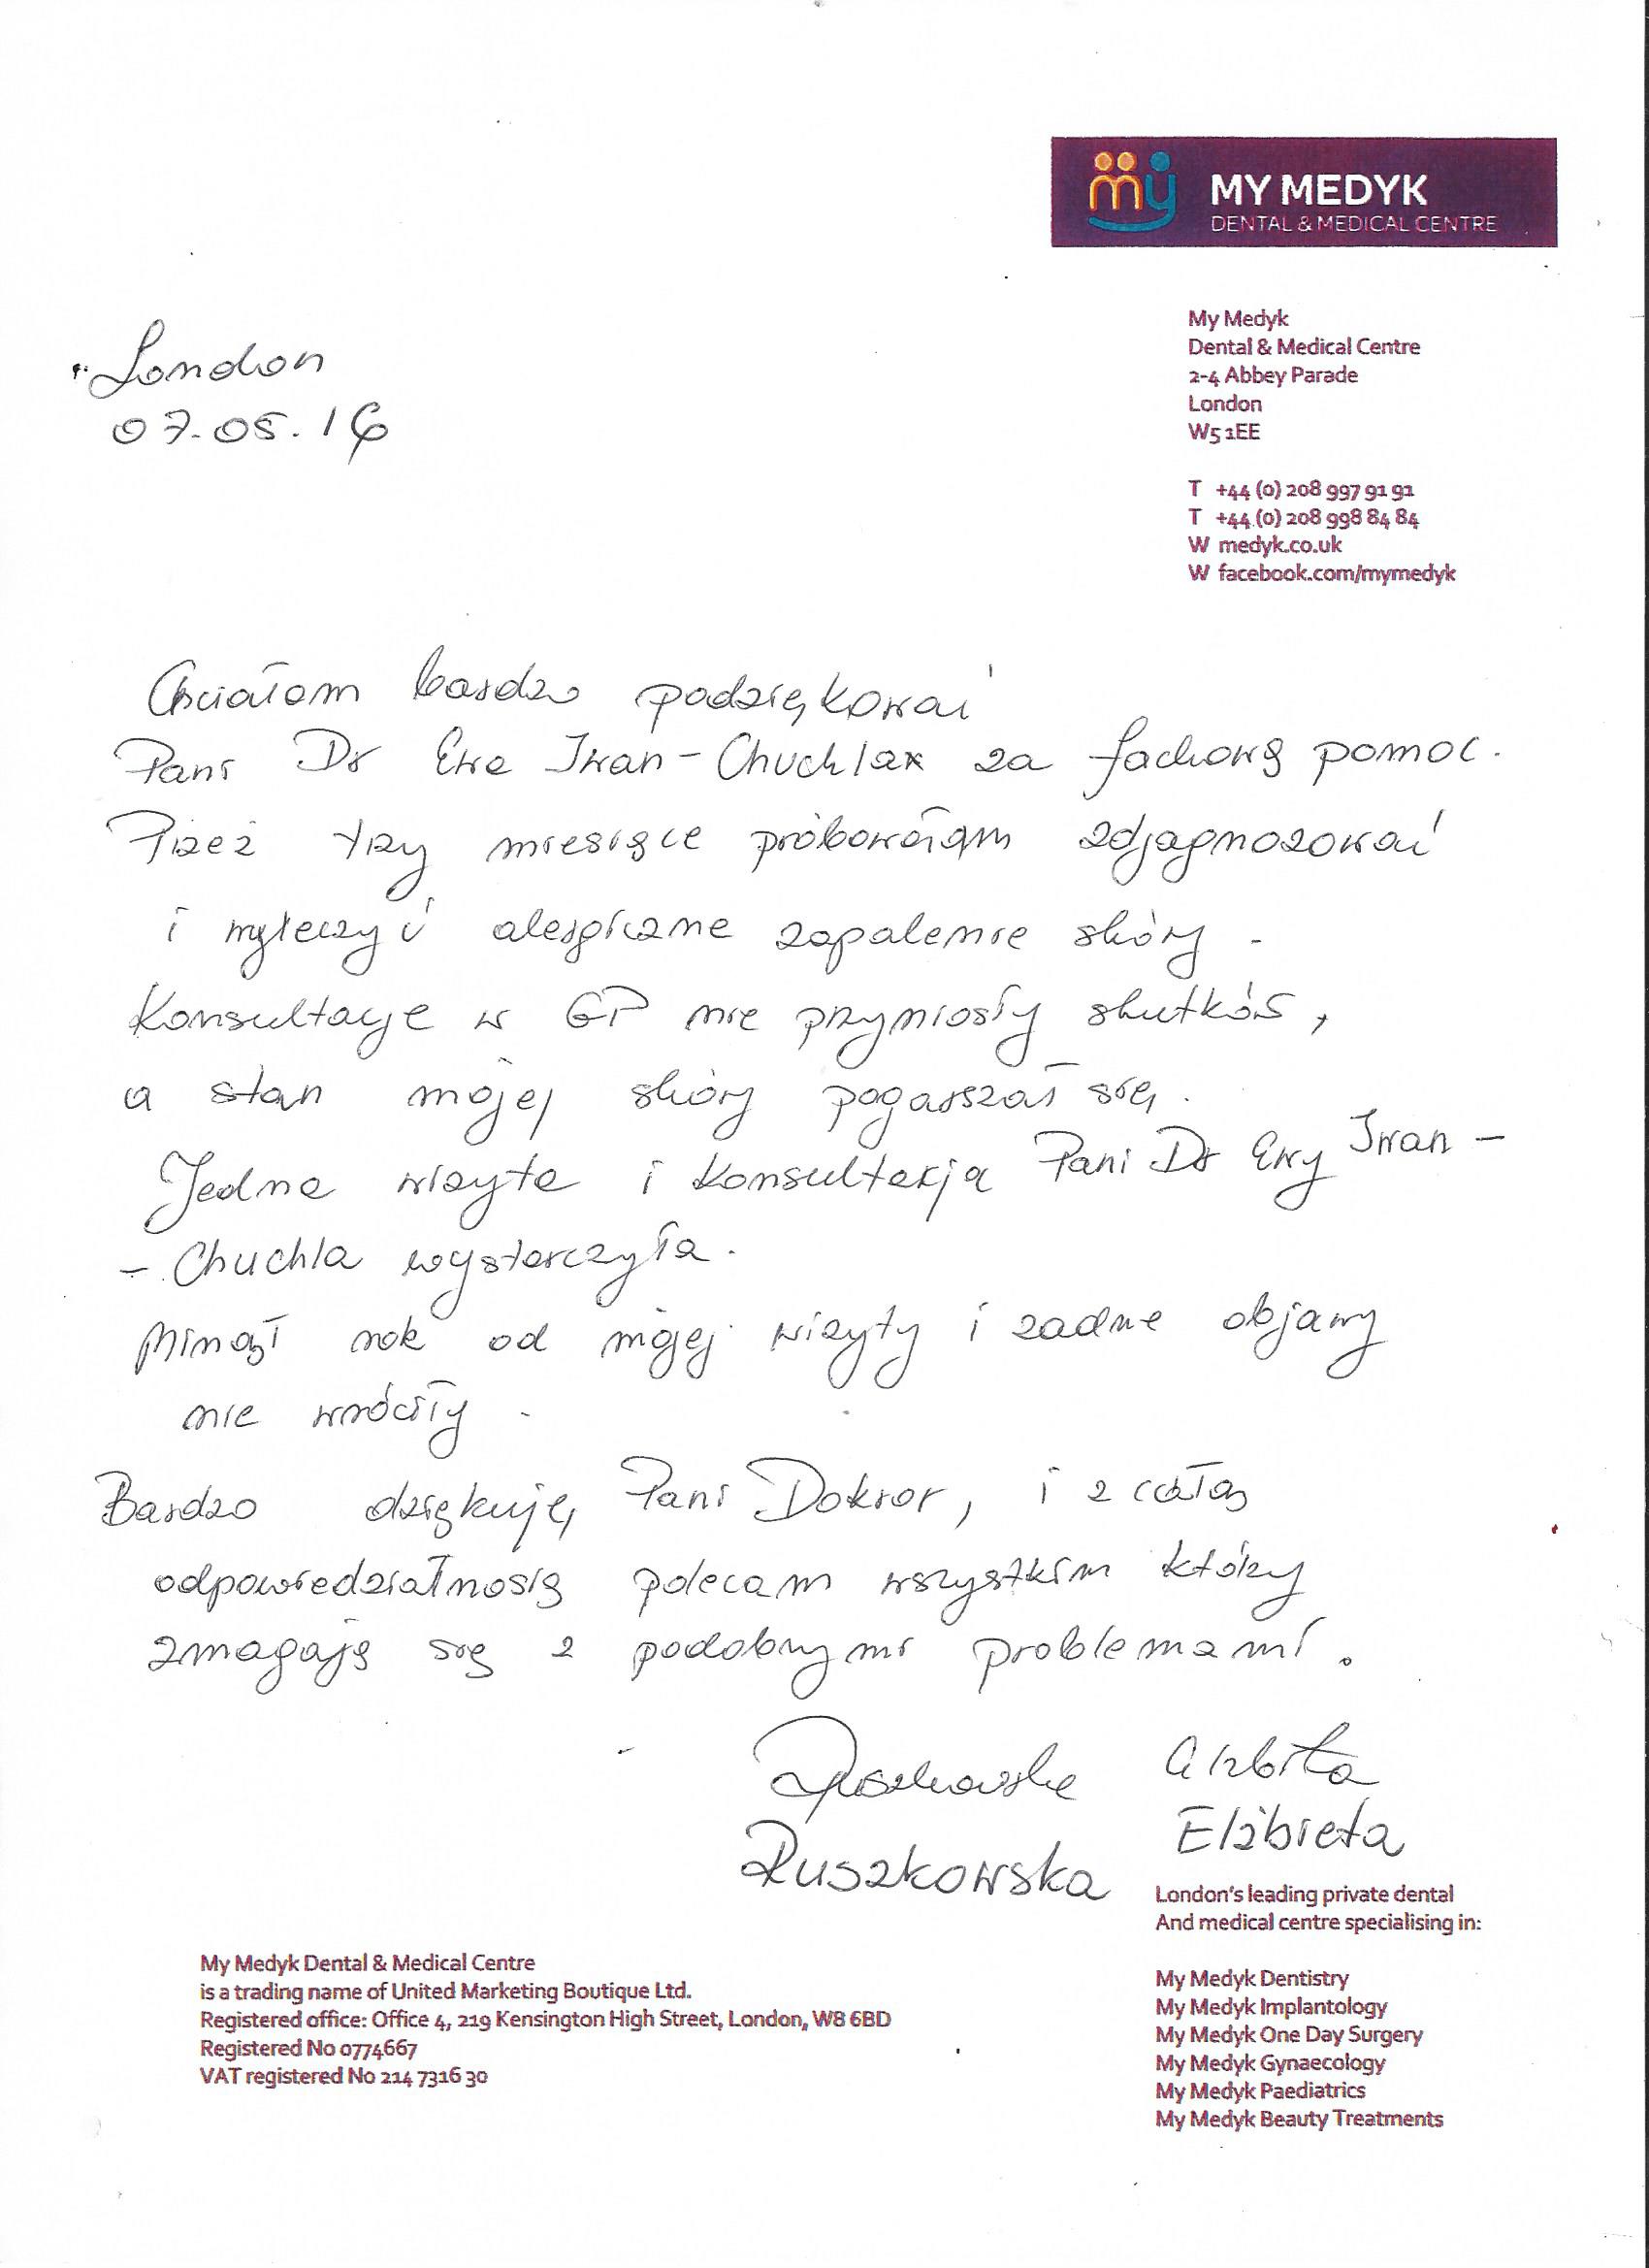 my MY MEDYK
DENTAL & MEDICAL CENTRE
My Medyk
Dental & Medical Centre
2-4 Abbey Parade
London
W5 1EE
T +44 (0) 208 997 91 91
T +44 (0) 208 998 84 84
W medyk.co.uk
W facebook.com/mymedyk
London
07.05.16
Chciałam bardzo podziękować
Pani Dr Ewe Iwan-Chuchlax za fachową pomoc.
Przez trzy miesiące próbowałam zdjagnozować
i wyleczyć alergiczne zapalenie skóry.
Konsultacje w GP nie przyniosły skutków,
a stan mojej skóry pogarszał się.
Jedna wizyta i konsultacja Pani Dr Ewy Iwan-
-Chuchla wystarczyła.
Minął rok od mojej wizyty i żadne objawy
nie wróciły.
Bardzo dziękuję Pani Doktor, i z całą
odpowiedziałnosią polecam wszystkim którzy
zmagają się z podobnymi problemami.
Ruszkowska
Ruszkowska Elżbieta
London's leading private dental
And medical centre specialising in:
My Medyk Dentistry
My Medyk Implantology
My Medyk One Day Surgery
My Medyk Gynaecology
My Medyk Paediatrics
My Medyk Beauty Treatments
My Medyk Dental & Medical Centre
is a trading name of United Marketing Boutique Ltd.
Registered office: Office 4, 219 Kensington High Street, London, W8 6BD
Registered No 0774667
VAT registered No 214 7316 30